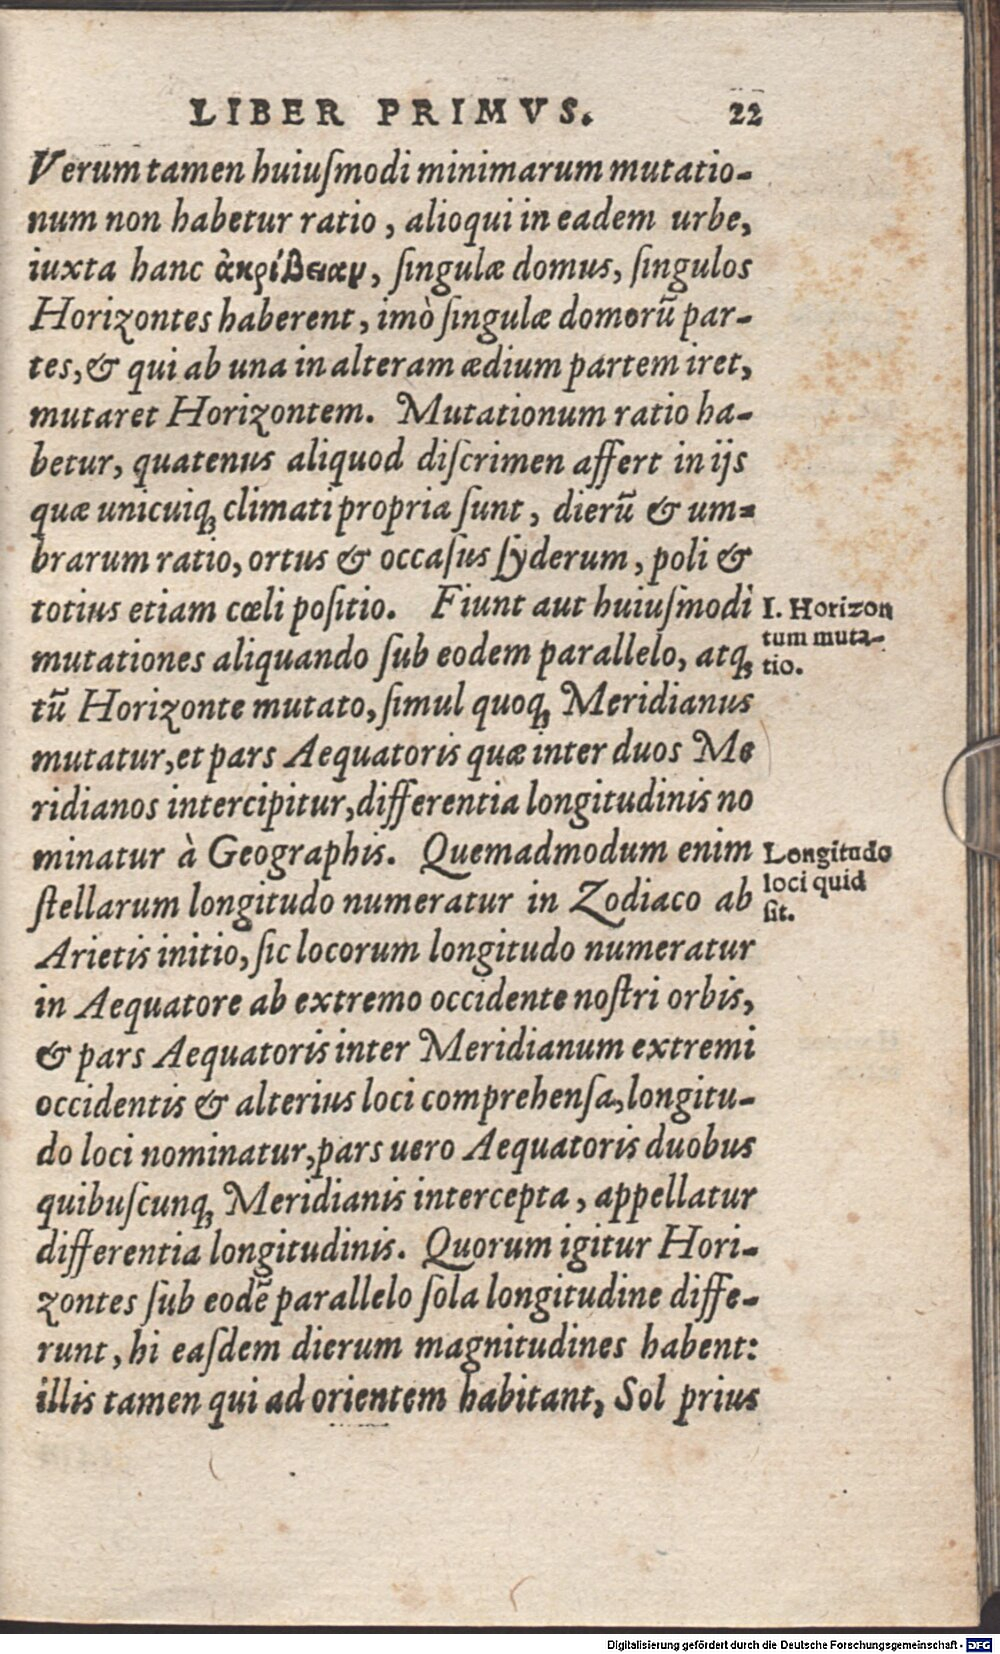 LIBER PRIMVS. 22
Verum tamen huiuſmodi minimarum mutatio-
num non habetur ratio, alioqui in eadem urbe,
iuxta hanc ἀκρίβειαν, ſingulæ domus, ſingulos
Horizontes haberent, imò ſingulæ domorū par-
tes, & qui ab una in alteram ædium partem iret,
mutaret Horizontem. Mutationum ratio ha-
betur, quatenus aliquod diſcrimen affert in ijs
quæ unicuiq; climati propria ſunt, dierū & um-
brarum ratio, ortus & occaſus ſyderum, poli &
totius etiam cœli poſitio. Fiunt aut huiuſmodi
mutationes aliquando ſub eodem parallelo, atq;
tū Horizonte mutato, ſimul quoq; Meridianus
mutatur, et pars Aequatoris quæ inter duos Me
ridianos intercipitur, differentia longitudinis no
minatur à Geographis. Quemadmodum enim
ſtellarum longitudo numeratur in Zodiaco ab
Arietis initio, ſic locorum longitudo numeratur
in Aequatore ab extremo occidente noſtri orbis,
& pars Aequatoris inter Meridianum extremi
occidentis & alterius loci comprehenſa, longitu-
do loci nominatur, pars uero Aequatoris duobus
quibuſcunq; Meridianis intercepta, appellatur
differentia longitudinis. Quorum igitur Hori-
zontes ſub eodē parallelo ſola longitudine diffe-
runt, hi eaſdem dierum magnitudines habent:
illis tamen qui ad orientem habitant, Sol prius
I. Horizon
tum muta-
tio.
Longitudo
loci quid
ſit.
Digitalisierung gefördert durch die Deutsche Forschungsgemeinschaft - DFG